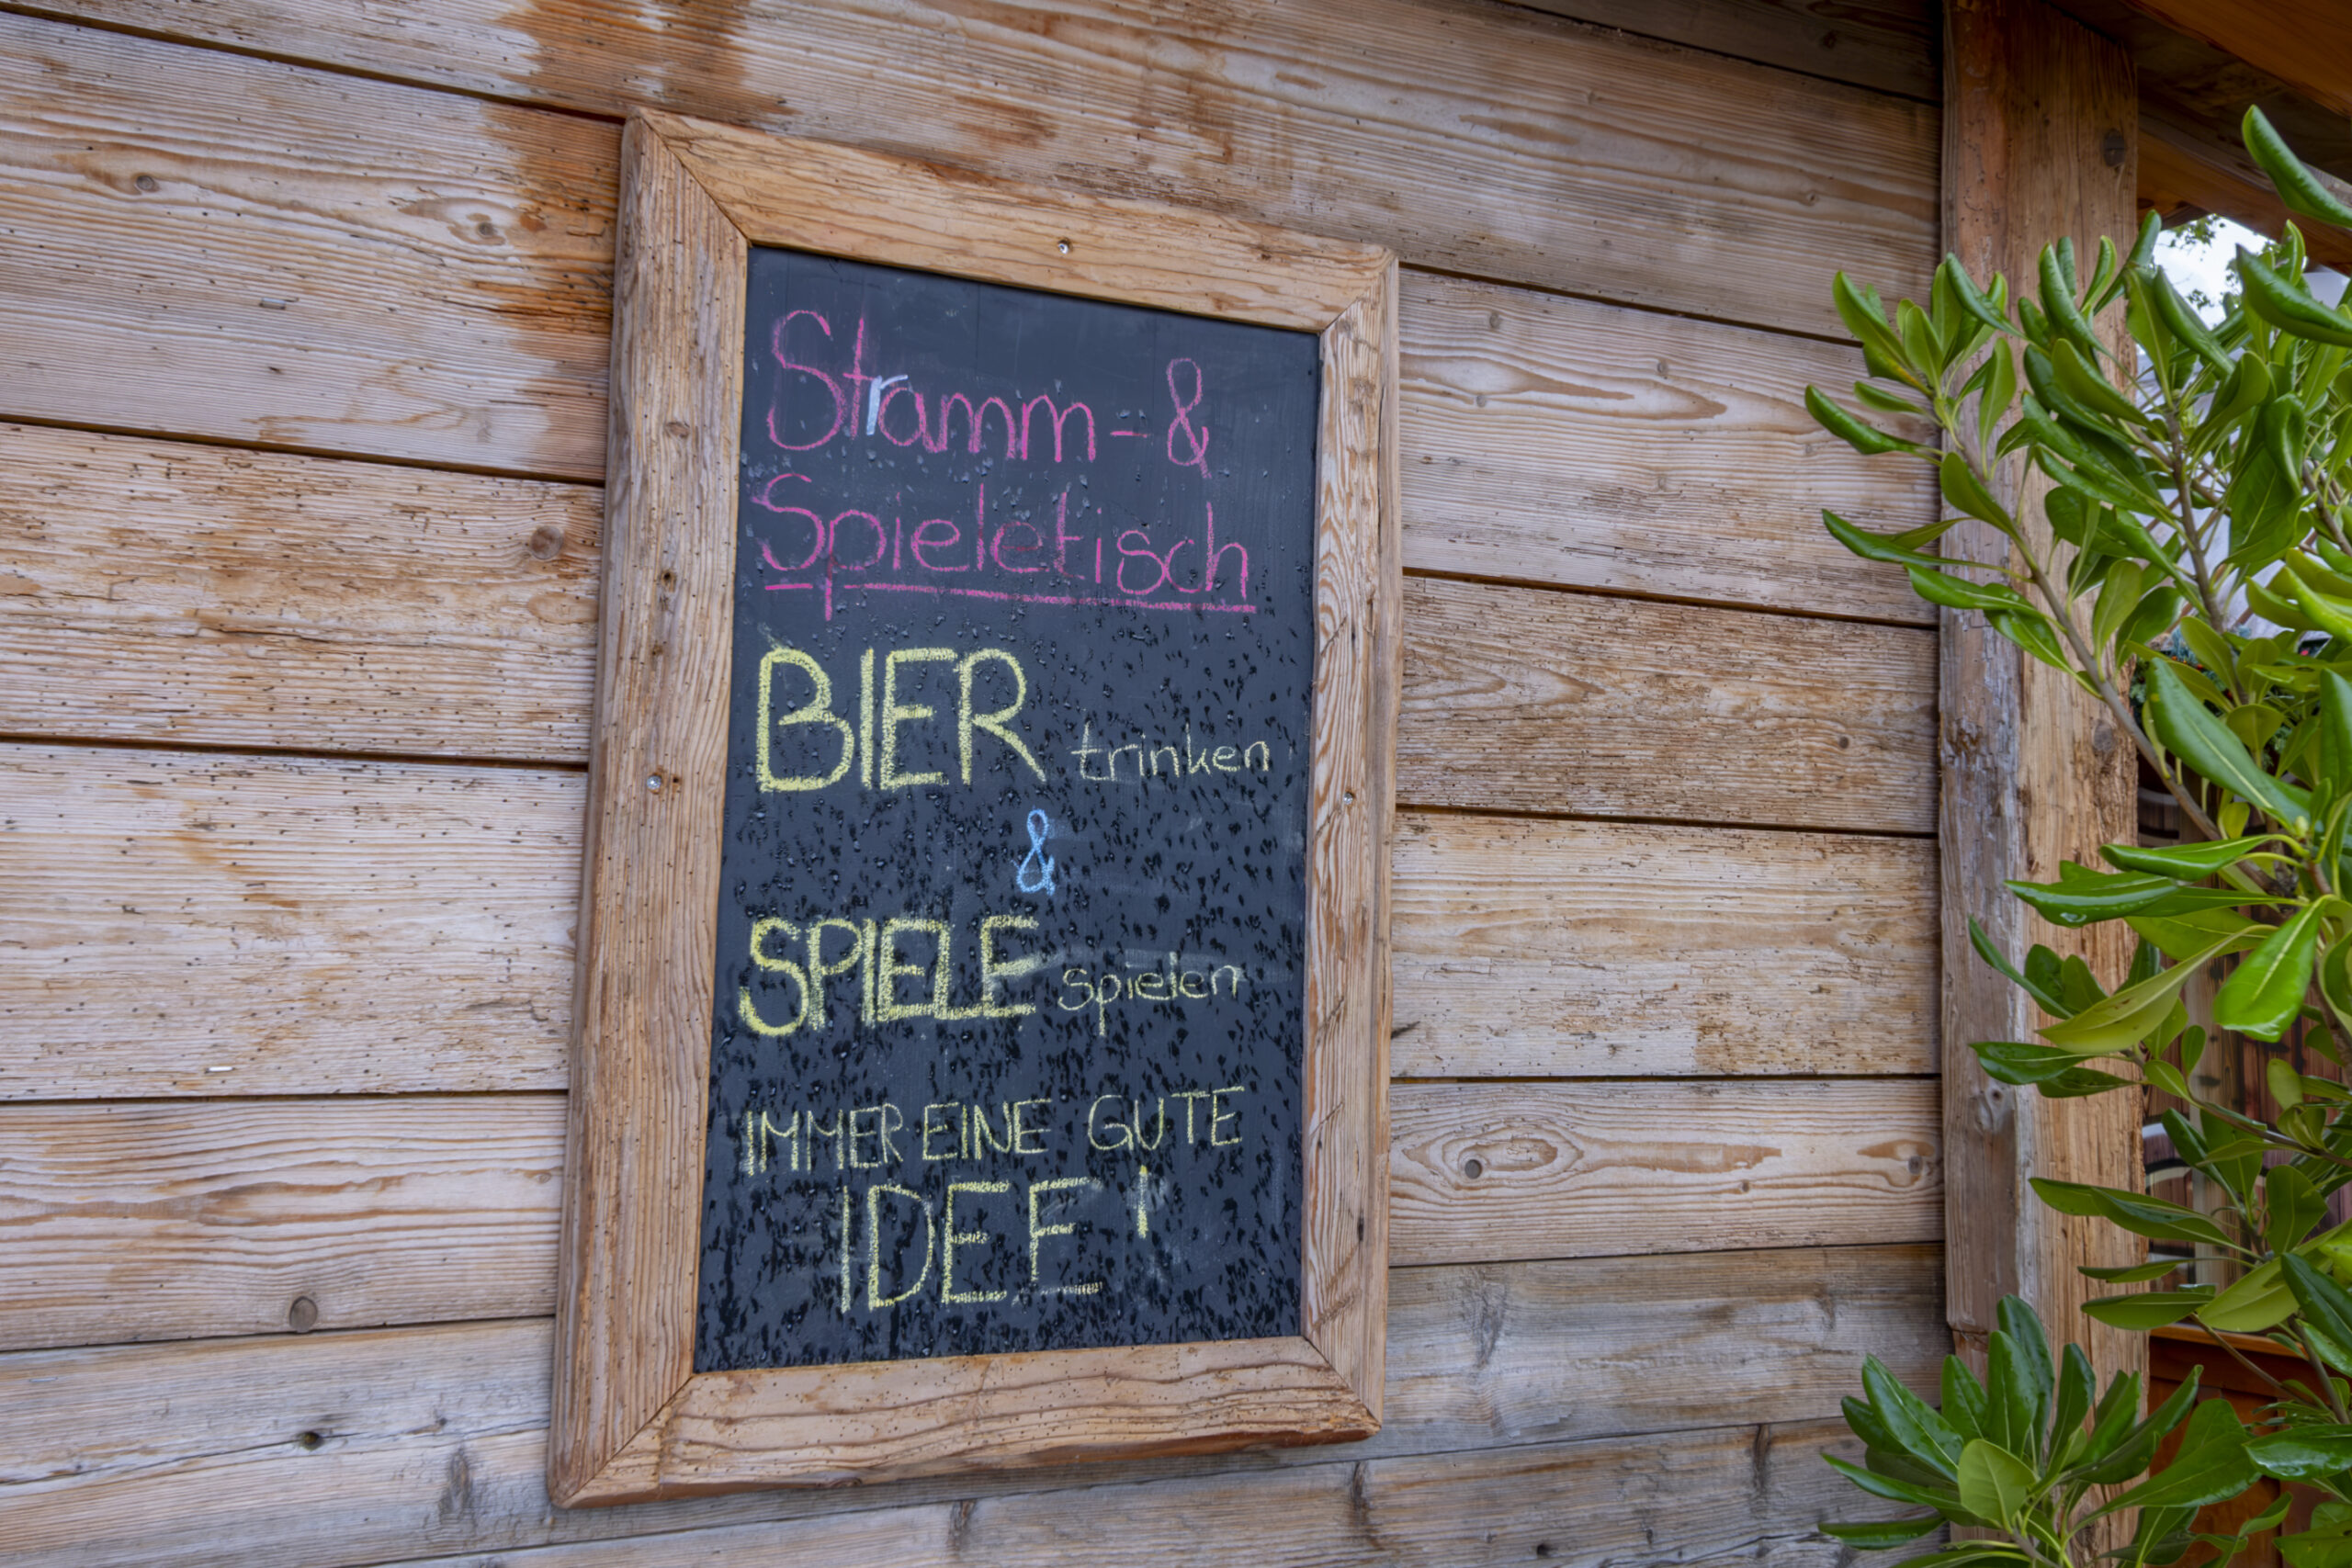 Stramm-&
Spieletisch
BIER trinken
&
SPIELE spielen
IMMER EINE GUTE
IDEE!